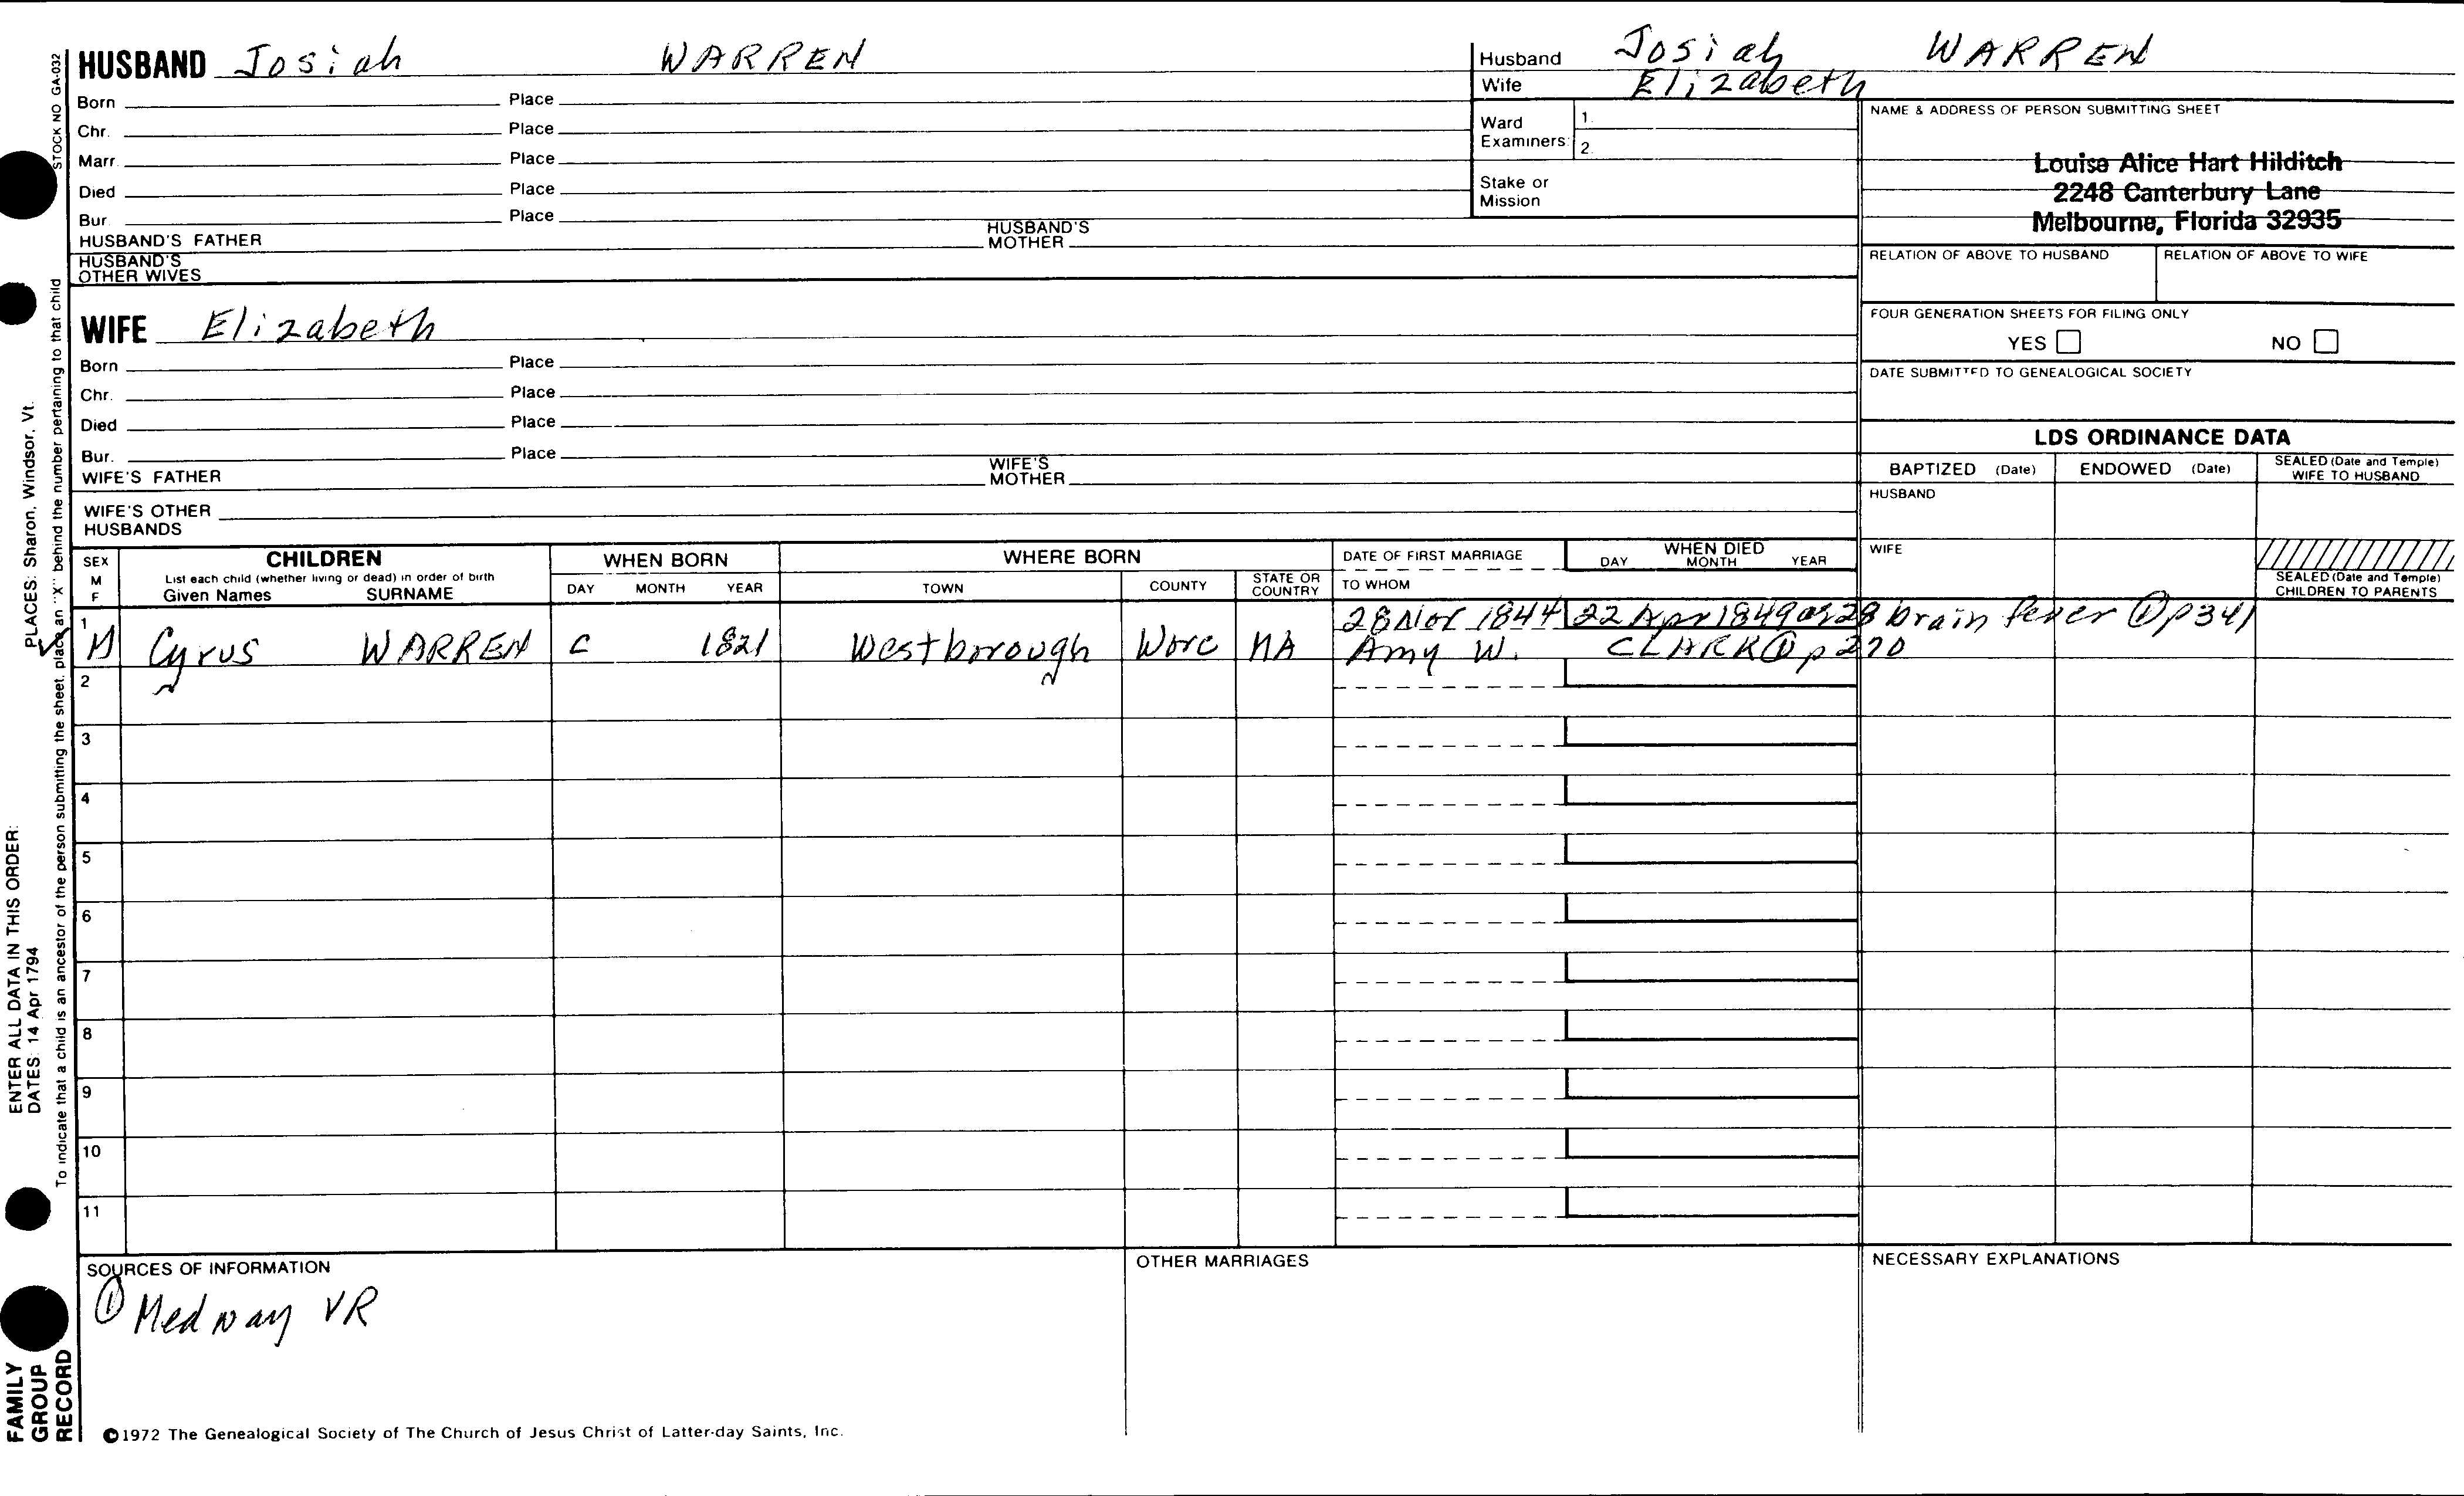 HUSBAND Josiah WARREN
Born Place
Chr. Place
Marr. Place
Died Place
Bur. Place
HUSBAND'S FATHER HUSBAND'S MOTHER
HUSBAND'S OTHER WIVES
Husband Josiah WARREN
Wife Elizabeth
Ward Examiners: 1.
2.
Stake or Mission
NAME & ADDRESS OF PERSON SUBMITTING SHEET
Louise Alice Hart Hilditch
2248 Canterbury Lane
Melbourne, Florida 32935
RELATION OF ABOVE TO HUSBAND RELATION OF ABOVE TO WIFE
FOUR GENERATION SHEETS FOR FILING ONLY
YES NO
DATE SUBMITTED TO GENEALOGICAL SOCIETY
WIFE Elizabeth
Born Place
Chr. Place
Died Place
Bur. Place
WIFE'S FATHER WIFE'S MOTHER
WIFE'S OTHER HUSBANDS
LDS ORDINANCE DATA
BAPTIZED (Date) ENDOWED (Date) SEALED (Date and Temple) WIFE TO HUSBAND
HUSBAND
WIFE
SEALED (Date and Temple) CHILDREN TO PARENTS
SEX M F
CHILDREN
List each child (whether living or dead) in order of birth
Given Names SURNAME
WHEN BORN
DAY MONTH YEAR
WHERE BORN
TOWN COUNTY STATE OR COUNTRY
DATE OF FIRST MARRIAGE
TO WHOM
WHEN DIED
DAY MONTH YEAR
28 Nov 1844 22 Apr 1849 as 28 brain fever ① p341
1 M Cyrus WARREN c 1821 Westborough Worc MA Amy W. CLARK ① p 270
2
3
4
5
6
7
8
9
10
11
SOURCES OF INFORMATION
① Medway VR
OTHER MARRIAGES
NECESSARY EXPLANATIONS
©1972 The Genealogical Society of The Church of Jesus Christ of Latter-day Saints, Inc.
STOCK NO GA-032
To indicate that a child is an ancestor of the person submitting the sheet, place an "X" behind the number pertaining to that child
ENTER ALL DATA IN THIS ORDER:
DATES: 14 Apr 1794 PLACES: Sharon, Windsor, Vt.
FAMILY
GROUP
RECORD